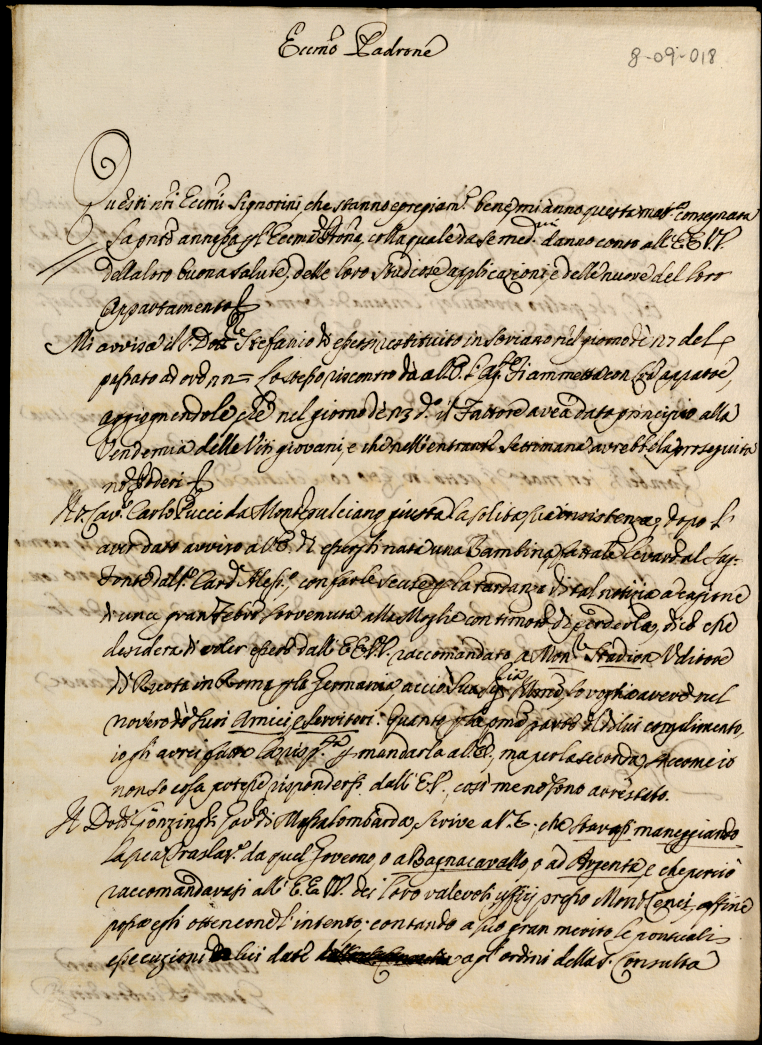 Eccmõ Padrone
8-09-018
Questi nrĩ Eccmĩ Signorini, che stanno egregiam.e bene, mi anno questa mat.a consegnata
la pntẽ annessa p l'Eccmõ, colla quale da se med.mi danno conto all'EE. VV.
della loro buona salute, delle loro studiose applicazioni, e delle nuove del loro
Appartamento
Mi avvisa il S. Dott.re Stefanio di essersi restituito in Soriano nel giorno di 27 del
passato ad ore = lo stesso riscontro dà all'E. l' Fiammetta con
aggiognendole, che nel giorno di 23 d.o il Fattore avea dato principio alla
Vendemia delle Viti giovani, e che nell'entrante Settimana avrebbela proseguita
ne Poderi
Il S. Cav.e Carlo Pucci da Montepulciano giusta la solita sua insistenza, dopo l'
aver dato avviso all'E. di essergli nata una Bambina, fattale levare al Sag:
Fonte dall' Card. Aless.o, con farle scuse p la tardanza di tal notizia a cagione
di una gran Febre sorvenuta alla Moglie con timore di perderla, dice che
desidera di voler essere dall'EE. VV. raccomandato a Mon.re Stadion Uditore
di Ruota in Roma p la Germania, acciò Sua Sig.ria Illmã lo voglia avere nel
novero de Suoi Amici, e Servitori: Quanto p la pmã parte del di lui complimento,
io gli avrei fatto la risp.ta p mandarla a V.E., ma per la seconda, siccome io
non so cosa potesse rispondersi dall'E.V., così me ne sono arrestato.
Il Dott.e Gov.e di Massalombarda, scrive a V.E., che stavasi maneggiando
la sua Traslaz.e da quel Governo, o a Bagnacavallo, o ad Argenta, e che perciò
raccomandavasi all'E.E. VV. dei loro valevoli uffizj presso Mons.r Tenci, affine
possa egli ottenerne l'intento: contando a suo gran merito le pontuali
esecuzioni da lui date agl'ordini della S. Consulta